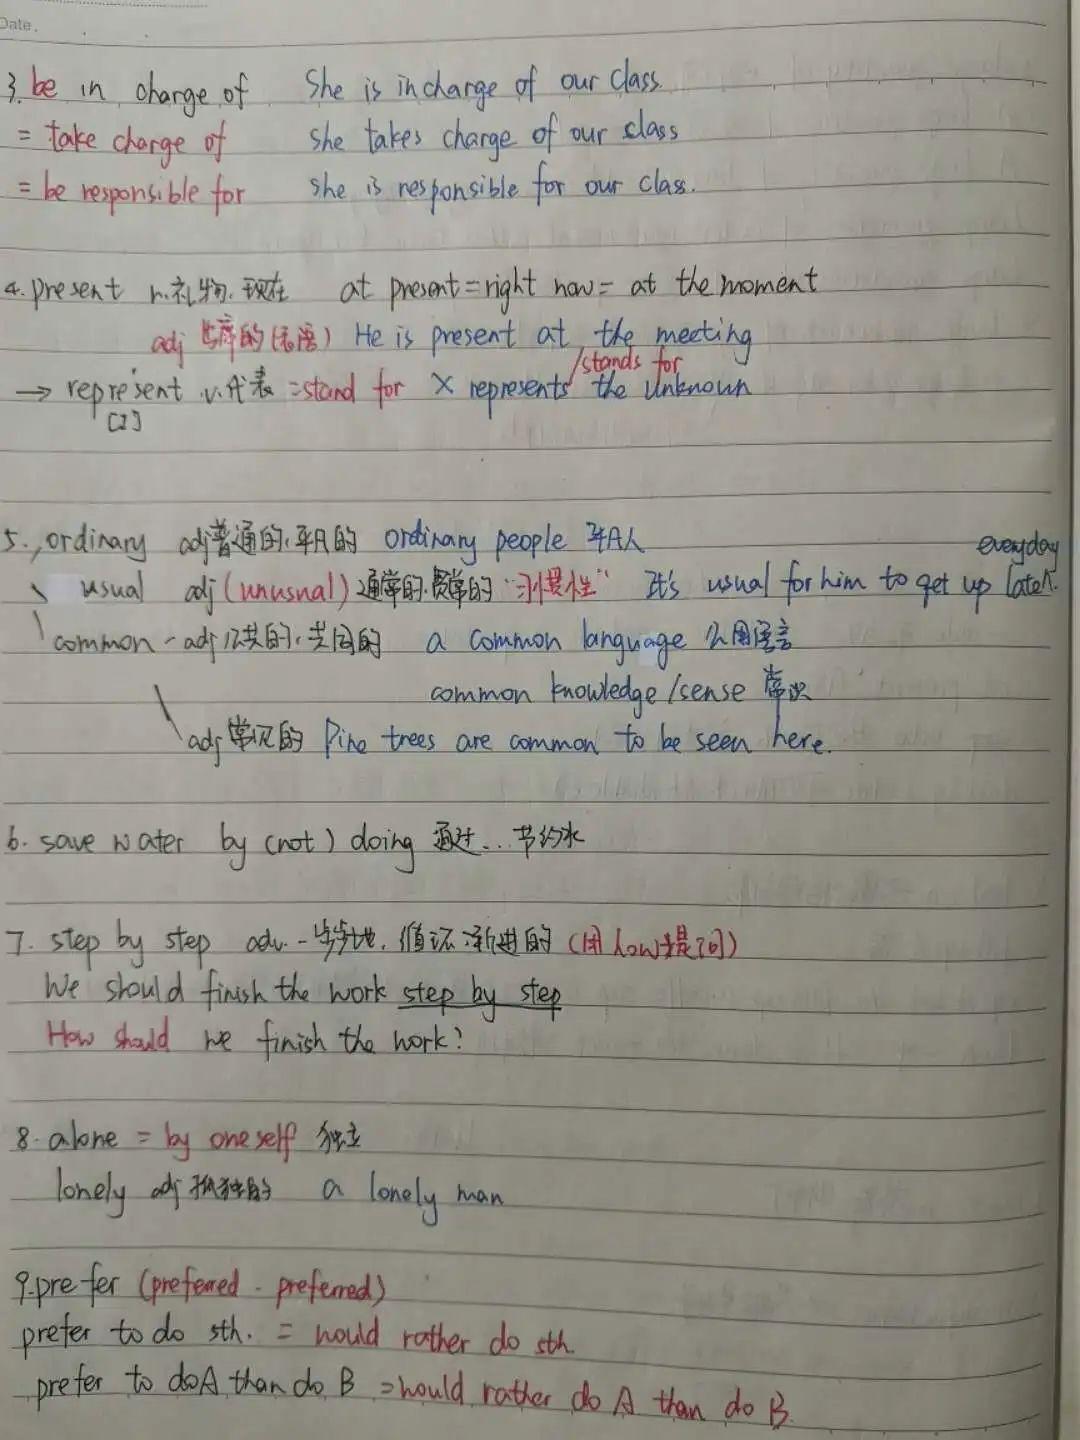 Date.
3. be in charge of She is in charge of our class.
= take charge of she takes charge of our class
= be responsible for she is responsible for our class.
4. present n.礼物.现在 at present = right now = at the moment
adj 出席的(表语) He is present at the meeting
/stands for
→ represent v.代表 = stand for X represents the unknown
[z]
5. ordinary adj普通的.平凡的 ordinary people 平凡人
everyday
usual adj (unusual) 通常的. "习惯性" It's usual for him to get up late.
common - adj 公共的.共同的 a common language 公用语言
common knowledge/sense 常识
adj 常见的 Pine trees are common to be seen here.
6. save water by (not) doing 通过...节约水
7. step by step adv. 一步步地.循环渐进的 (用how提问)
We should finish the work step by step
How should we finish the work?
8. alone = by oneself 独立
lonely adj 孤独的 a lonely man
9. prefer (preferred - preferred)
prefer to do sth. = would rather do sth.
prefer to do A than do B = would rather do A than do B.